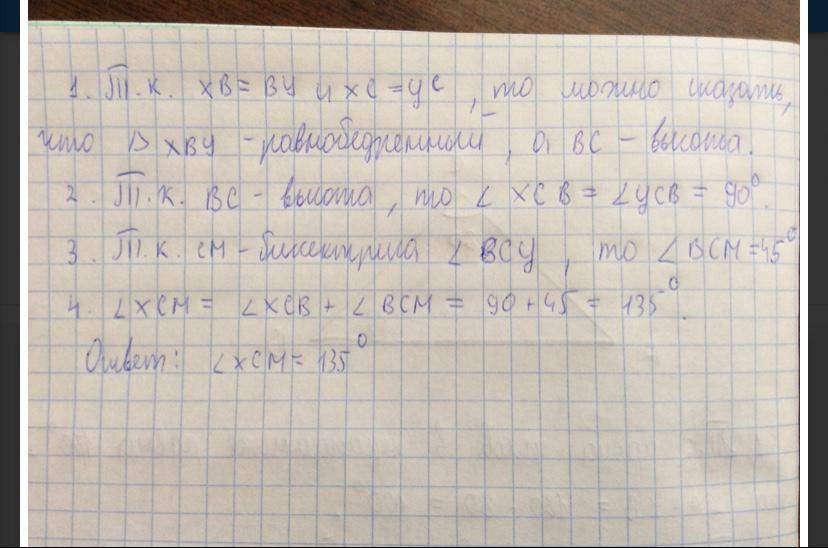 1. Т.к. XB = BY и XC = YC, то можно сказать,
что △ XBY - равнобедренный, а BC - высота.
2. Т.к. BC - высота, то ∠ XCB = ∠YCB = 90°.
3. Т.к. CM - биссектриса ∠ BCY, то ∠ BCM = 45°
4. ∠XCM = ∠XCB + ∠ BCM = 90 + 45 = 135°.
Ответ: ∠XCM = 135°